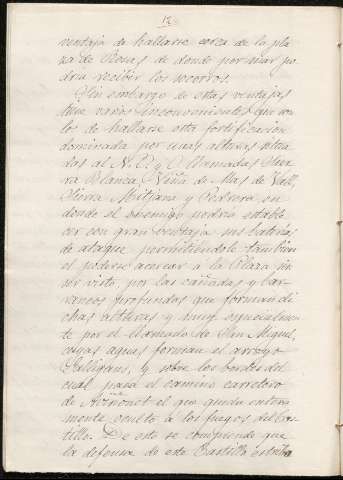 12
ventaja de hallarse cerca de la pla
za de Rosas de donde por mar po
dria recibir los socorros.
Sin embargo de estas ventajas
tiene varios inconvenientes que son
los de hallarse esta fortificacion
dominada por unas alturas situa
das al N. E. y O. llamadas Tier
ra Blanca, Viña de Mas de Vall,
Sierra Mitjana y Pedrera en
donde el enemigo podria estable
cer con gran ventaja sus baterias
de ataque permitiendole tambien
el poderse acercar a la Plaza sin
ser visto, por las cañadas y bar
rancos profundos que forman di
chas alturas y muy especialmen
te por el llamado de San Miguel,
cuyas aguas forman el arroyo
Galligans, y sobre los bordes del
cual pasa el camino carretero
de el que queda entera
mente oculto a los fuegos del Cas
tillo. De esto se comprende que
la defensa de este Castillo estriba